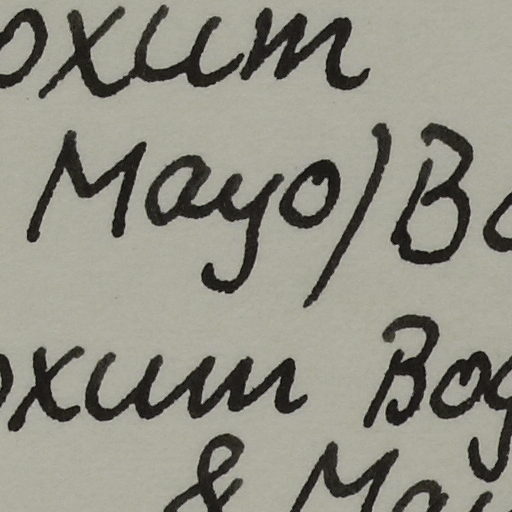 oxum
Mayo/Bo
oxum Bog
& May